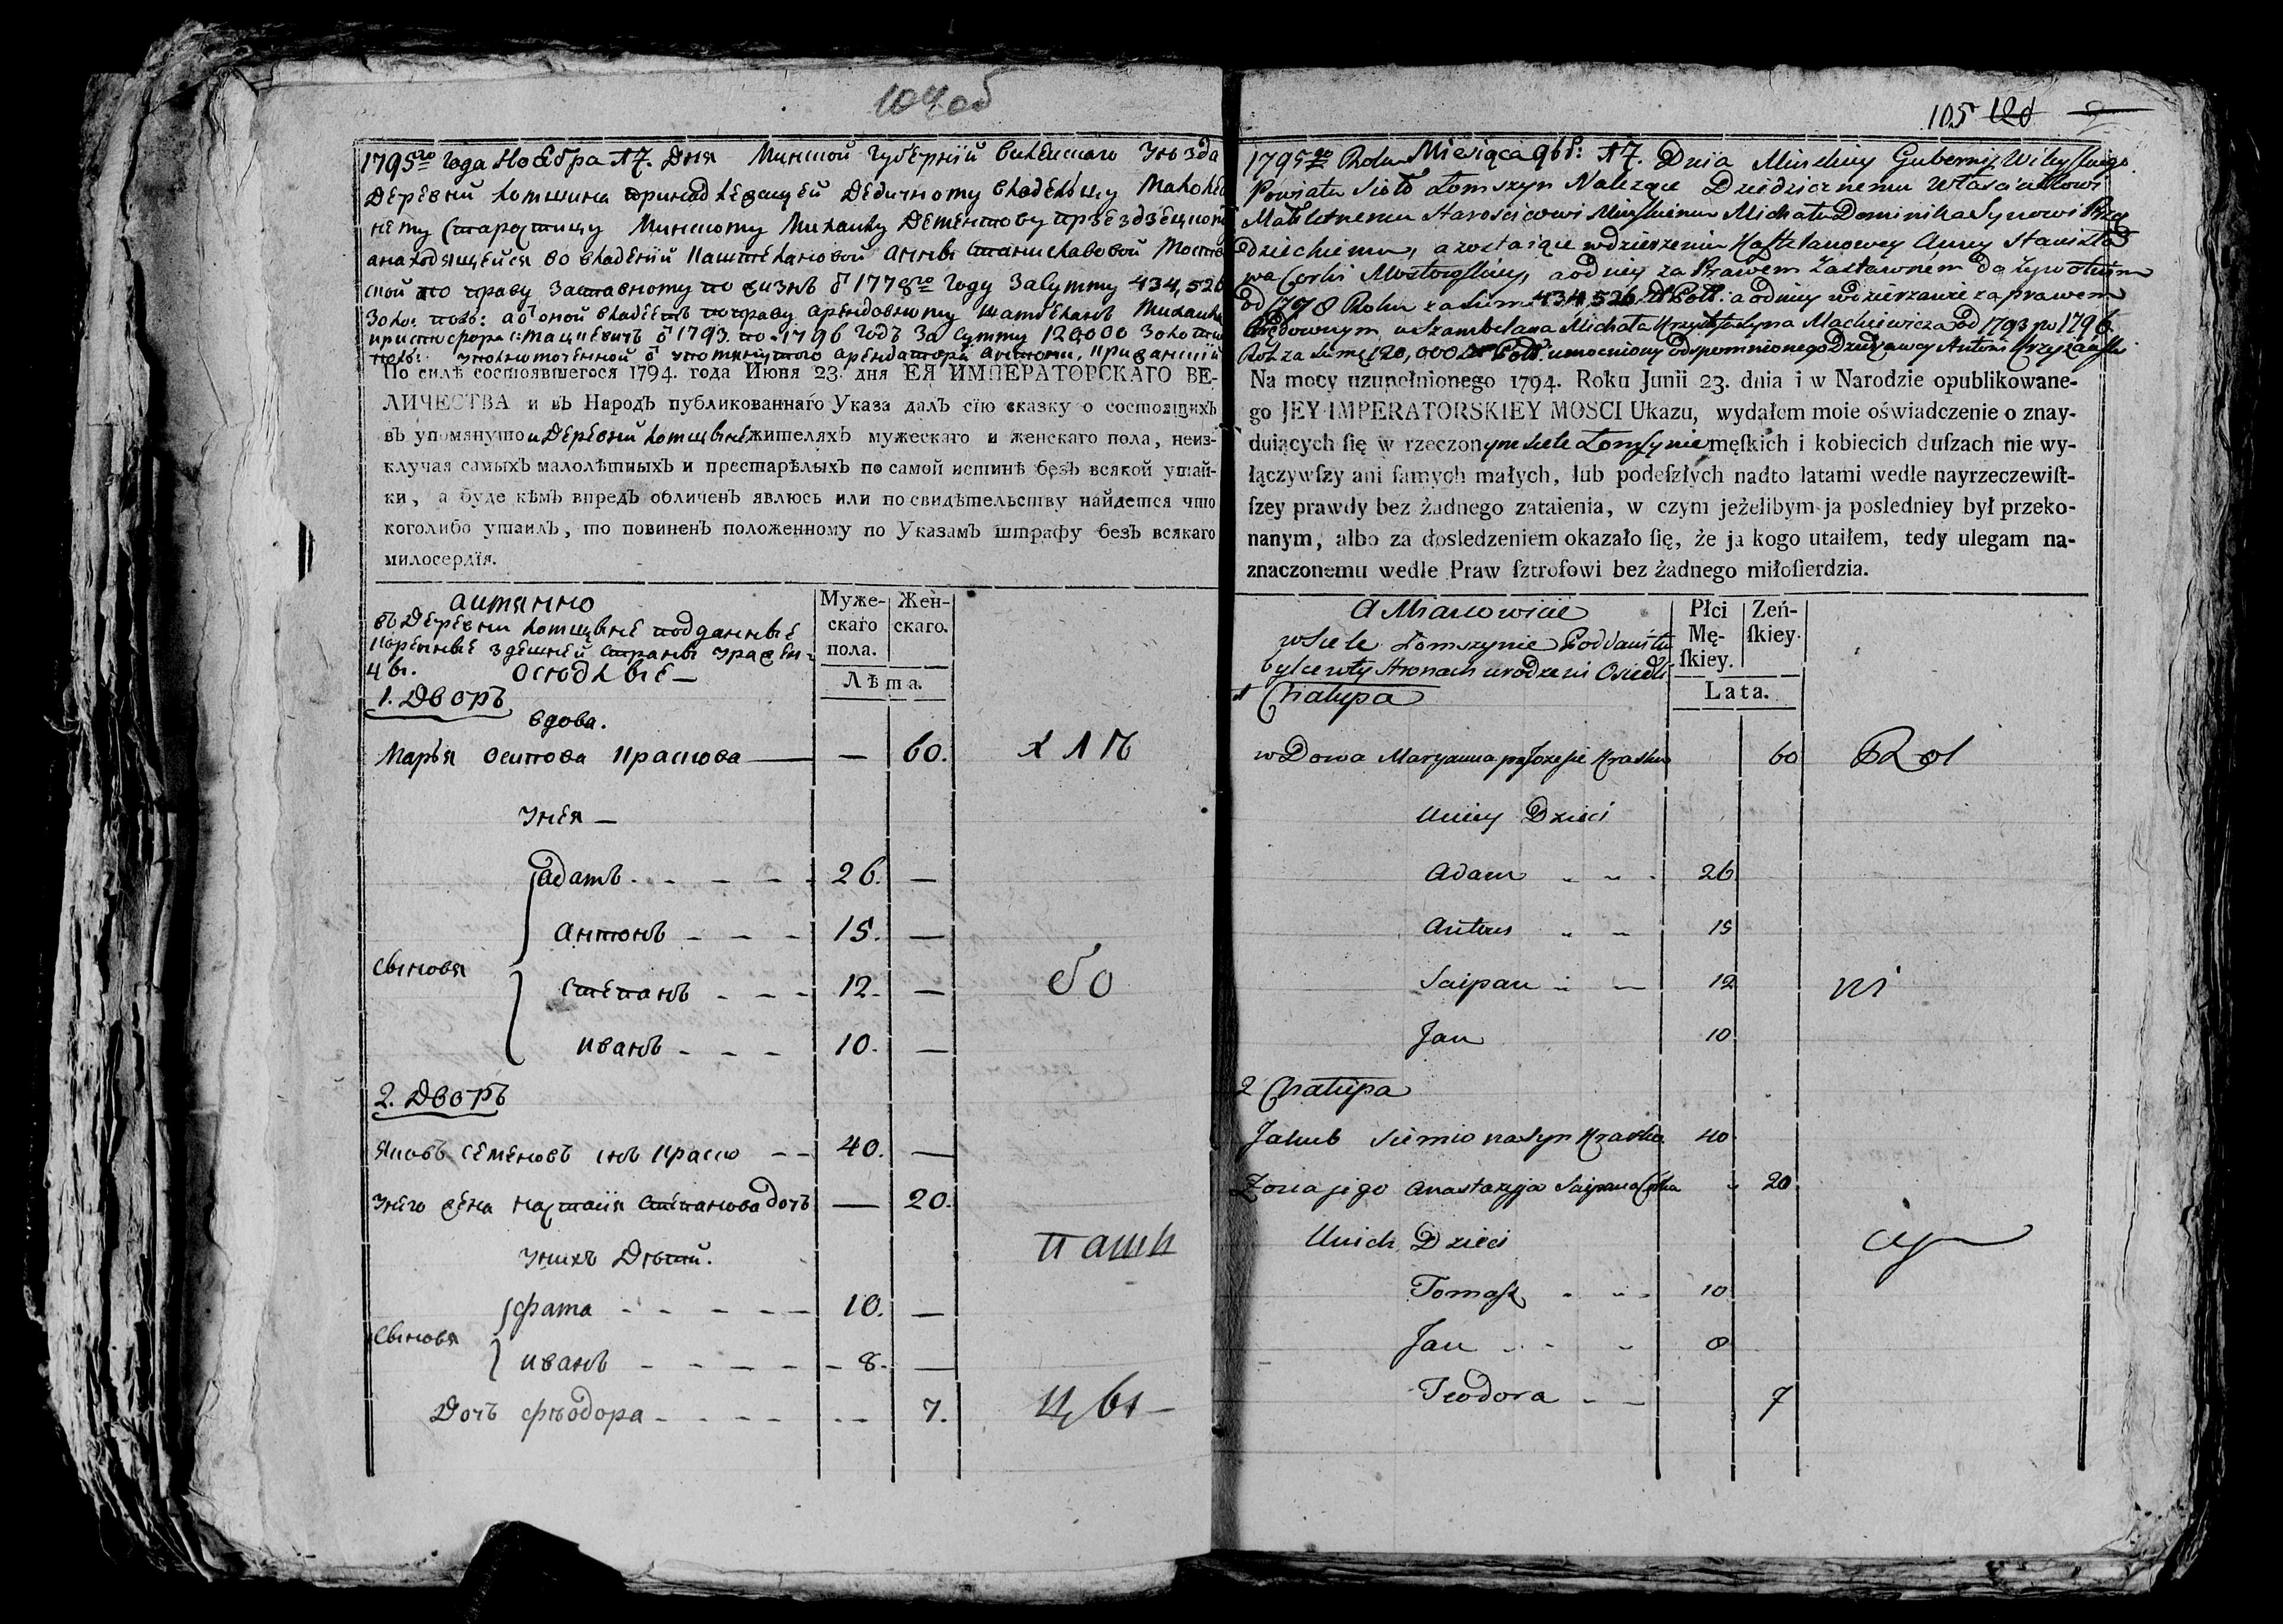 104 об
1795го года Ноебра 17. дня Минской губернiи вилейскаго уѣзда
деревни Помшина принадлежащей дедичному владельцу Малолет
нему Старостицу Минскому Михаилу Дементову Презездзецкому
анаходящейся во владенiи Каштелановой Анны Станиславовой Мостов
ской по праву заставному по жизнь ѿ 1778го году Засумму 434,526
Золо: поль: аѿ оной владеетъ поправу арендовному шамбеланъ Михаилъ
Кристофоровъ Мацкевичъ ѿ 1793. по 1796 годъ За сумму 120,000 Золотых
поль: уполномоченной ѿ упомянутого арендатора Антони Крижанский
По силѣ состоявшегося 1794. года Июня 23. дня ЕЯ ИМПЕРАТОРСКАГО ВЕ-
ЛИЧЕСТВА и въ Народъ публикованнаго Указа далъ сїю сказку о состоящихъ
въ упомянутой деревни Ломшине жителяхъ мужескаго и женскаго пола, неиз-
ключая самыхъ малолѣтныхъ и престарѣлыхъ по самой истинѣ безъ всякой утай-
ки, а буде кѣмъ впредъ обличенъ явлюсь или по свидѣтельству найдется что
коголибо утаилъ, то повиненъ положенному по Указамъ штрафу безъ всякаго
милосердїя.
аимянно
въ деревни Ломшине подданные
коренные здешней страны урожен-
цы. Оседлые
Муже-
скаго
пола.
Жен-
скаго.
Лѣта.
1. Дворъ
вдова.
Марья Осипова Краскова — 60.
унея
Сыновя
Адамъ 26. —
Антонъ 15. —
Степанъ 12. —
Иванъ 10. —
2. Дворъ
Яковъ Семеновъ снъ Краско 40. —
унего жена Настасiя Степанова дочъ — 20.
унихъ дѣти.
Сыновя
Фама 10. —
Иванъ 8. —
Дочъ Фѣодора 7.
хлѣ
бо
паш
цы
105 120
1795go Roku Miesiąca 9br: 17. Dnia Minskiey Gubernij Wileyskiego
Powiatu Sioło Łomszyn Należące Dziedzicznemu Właścicielowi
Małoletnemu Starościcowi Minskiemu Michału Dominika Synowi Prze
dzieckiemu, a zostaiące w dzierzeniu Kasztelanowey Anny Stanisła
wa Corki Mostowskiey, a od niey za Prawem Zastawnem Dożywotnim
od 1778 Roku za sumę 434,526 Zł Poll: a od niey w dzierzawie za prawem
Arędownym u Szambelana Michała Krzysztofa Syna Mackiewicza od 1793 po 1796
Rok za sumę 120,000 Zł Poll: umocniony od spomnionego Dzierżawcy Antoni Krzyżański
Na mocy uzupełnionego 1794. Roku Junii 23. dnia i w Narodzie opublikowane-
go JEY IMPERATORSKIEY MOSCI Ukazu, wydałem moie oświadczenie o znay-
duiących ſię w rzeczonym siele Łomszynie męſkich i kobiecich duſzach nie wy-
łączywſzy ani ſamych małych, lub podeſzłych nadto latami wedle nayrzeczewiſt-
ſzey prawdy bez żadnego zataienia, w czym jeżelibym ja posledniey był przeko-
nanym, albo za dosledzeniem okazało ſię, że ja kogo utaiłem, tedy ulegam na-
znaczonemu wedle Praw ſztrofowi bez żadnego miłoſierdzia.
A Mianowicie
w Siele Łomszynie Poddaństwo
bylce w tych Stronach urodzeni Osiedli
Płci
Mę-
ſkiey.
Zeń-
ſkiey.
Lata.
1 Chałupa
wDowa Maryanna po Jozefie Krasko 60
Uniey Dzieci
Adam 26
Antoni 15
Sciepan 12
Jan 10
2 Chałupa
Jakub Siemiona Syn Krasko 40
Żona jego Anastazyja Sciepana Corka 20
Unich Dzieci
Tomaſz 10
Jan 8
Teodora 7
Rol
ni
cy